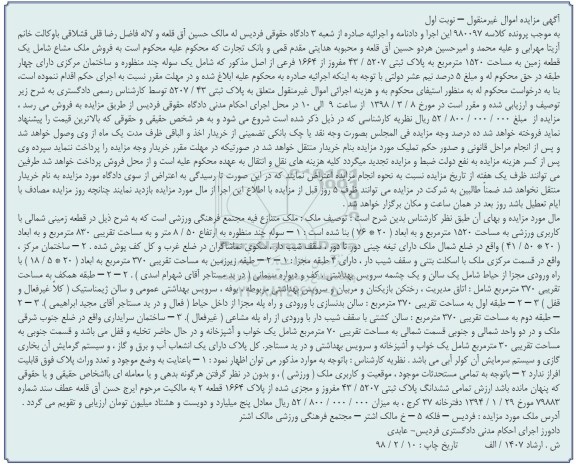 آگهی مزایده اموال غیرمنقول – نوبت اول
به موجب پرونده کلاسه ۹۸۰۰۹۷ این اجرا و دادنامه و اجرائیه صادره از شعبه ۳ دادگاه حقوقی فردیس له مالک حسین آق قلعه و لاله فاضل رضا قلی قشلاقی باوکالت خانم
آزیتا مهرابی و علیه محمد و امیرحسین هردو حسین آق قلعه و محبوبه هدایتی مقدم قمی و بانک تجارت که محکوم علیه محکوم است به فروش ملک مشاع شامل یک
قطعه زمین به مساحت ۱۵۲۰ مترمربع به پلاک ثبتی ۵۲۰۷ / ۴۳ مفروز از ۱۶۶۴ فرعی از اصل مذکور که شامل یک سوله چند منظوره و ساختمان مرکزی دارای چهار
طبقه در حق محکوم له و مبلغ ۵ درصد نیم عشر دولتی با توجه به اینکه اجرائیه صادره به محکوم علیه ابلاغ شده و در مهلت مقرر نسبت به اجرای حکم اقدام ننموده است،
بنا به درخواست محکوم له به منظور استیفای محکوم به و هزینه اجرائی اموال غیرمنقول متعلق به پلاک ثبتی ۴۳ / ۵۲۰۷ توسط کارشناس رسمی دادگستری به شرح زیر
توصیف و ارزیابی شده و مقرر است در مورخ ۸ / ۳ / ۱۳۹۸ از ساعت ۹ الی ۱۰ در محل اجرای احکام مدنی دادگاه حقوقی فردیس از طریق مزایده به فروش می رسد ،
مزایده از مبلغ ۰۰۰ / ۰۰۰ / ۸۰۰ / ۵۲ ریال نظریه کارشناسی که در ذیل ذکر شده است شروع می شود و به هر شخص حقیقی و حقوقی که بالاترین قیمت را پیشنهاد
نماید فروخته خواهد شد ده درصد وجه مزایده فی المجلس بصورت وجه نقد یا چک بانکی تضمینی از خریدار اخذ و الباقی ظرف مدت یک ماه از وی وصول خواهد شد
و پس از انجام مراحل قانونی و صدور حکم تملیک مورد مزایده بنام خریدار منتقل خواهد شد در صورتیکه در مهلت مقرر خریدار وجه مزایده را پرداخت ننماید سپرده وی
پس از کسر هزینه مزایده به نفع دولت ضبط و مزایده تجدید میگردد کلیه هزینه های نقل و انتقال به عهده محکوم علیه است و از محل فروش پرداخت خواهد شد طرفین
می توانند ظرف یک هفته از تاریخ مزایده نسبت به نحوه انجام مزایده اعتراض نمایند که در این صورت تا رسیدگی به اعتراض از سوی دادگاه مورد مزایده به نام خریدار
منتقل نخواهد شد ضمناً طالبین به شرکت در مزایده می توانند ظرف ۵ روز قبل از مزایده با اطلاع این اجرا از مال مورد مزایده بازدید نمایند چنانچه روز مزایده مصادف با
ایام تعطیل باشد روز بعد در همان ساعت و مکان برگزار خواهد شد .
مال مورد مزایده و بهای آن طبق نظر کارشناس بدین شرح است : توصیف ملک : ملک متنازع فیه مجتمع فرهنگی ورزشی است که به شرح ذیل در قطعه زمینی شمالی با
کاربری ورزشی به مساحت ۱۵۲۰ مترمربع و به ابعاد ( ۲۰ * ۷۶ ) بنا شده است : ۱ – سوله چند منظوره به ارتفاع ۵۰ / ۸ متر و به مساحت تقریبی ۸۳۰ مترمربع و به ابعاد
( ۲۰ * ۵۰ / ۴۱ ) واقع در ضلع شمال ملک دارای تیغه چینی دور تا دور، سقف شیب دار، سکوی تماشاگران در ضلع غرب و کل کف پوش شده . ۲ – ساختمان مرکز ،
واقع در قسمت مرکزی ملک با اسکلت بتنی و سقف شیب دار ، دارای ۴ طبقه مجزا : ۱ – ۲ – طبقه زیرزمین به مساحت تقریبی ۳۷۰ مترمربع به ابعاد ( ۲۰ * ۵ / ۱۸ ) با
راه ورودی مجزا از حیاط شامل یک سالن و یک چشمه سرویس بهداشتی ، کف و دیوار سیمانی ( در ید مستاجر آقای شهرام اسدی ) . ۲ – ۲ – طبقه همکف به مساحت
تقریبی ۳۷۰ مترمربع شامل : اتاق مدیریت ، رختکن بازیکنان و مربیان و سرویس بهداشتی مربوطه ، بوفه ، سرویس بهداشتی عمومی و سالن ژیمناستیک ( کلا غیرفعال و
قفل ) ۳ – ۲ – طبقه اول به مساحت تقریبی ۳۷۰ مترمربع : سالن بدنسازی با ورودی و راه پله مجزا از داخل حیاط ( فعال و در ید مستاجر آقای مجید ابراهیمی ). ۳ – ۲
– طبقه دوم به مساحت تقریبی ۳۷۰ مترمربع : سالن کشتی با سقف شیب دار با ورودی از راه پله مشاعی ( غیرفعال ). ۳ – ساختمان سرایداری واقع در ضلع جنوب شرقی
ملک و در دو واحد شمالی و جنوبی قسمت شمالی به مساحت تقریبی ۷۰ مترمربع شامل یک خواب و آشپزخانه و در حال حاضر تخلیه و قفل می باشد و قسمت جنوبی به
مساحت تقریبی ۳۰ مترمربع شامل یک خواب و آشپزخانه و سرویس بهداشتی و در ید مستاجر. کل پلاک دارای یک انشعاب آب و برق و گاز ، و سیستم گرمایش آن بخاری
گازی و سیستم سرمایش آن کولر آبی می باشد . نظریه کارشناس : باتوجه به موارد مذکور می توان اظهار نمود : ۱ – باعنایت به وضع موجود و تعدد وراث پلاک فوق قابلیت
افراز ندارد ۲ – باتوجه به تمامی مستحدثات موجود ، موقعیت و کاربری ملک ( ورزشی ) ، و بدون در نظر گرفتن هرگونه بدهی و یا معامله ای بااشخاص حقیقی و یا حقوقی
که پنهان مانده باشد ارزش تمامی ششدانگ پلاک ثبتی ۵۲۰۷ / ۴۳ مفروز و مجزی شده از پلاک ۱۶۶۴ قطعه ۲ به مالکیت مرحوم ایرج حسن آق قلعه عطف سند شماره
۷۹۸۸۳ مورخ ۲۹ / ۱ / ۱۳۹۴ دفترخانه ۳۷ کرج ، به میزان ۰۰۰ / ۰۰۰ / ۸۰۰ / ۵۲ ریال معادل پنج میلیارد و دویست و هشتاد میلیون تومان ارزیابی و تقویم می گردد .
آدرس ملک مورد مزایده : فردیس – فلکه ۵ – خ مالک اشتر – مجتمع فرهنگی ورزشی مالک اشتر
دادورز اجرای احکام مدنی دادگستری فردیس- عابدی
ش . ارشاد ۱۴۰۷ / الف تاریخ چاپ : ۱۰ / ۲ / ۹۸